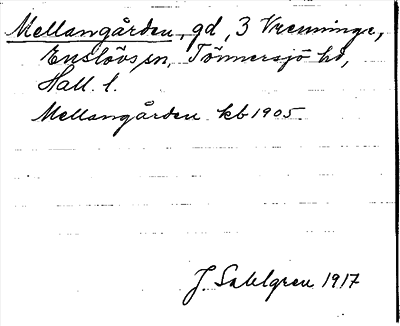 Mellangården, gd, 3 Vrenninge,
Enslövs sn, Tönnersjö hd,
Hall. l.
Mellangården kb 1905.
J. Sahlgren 1917